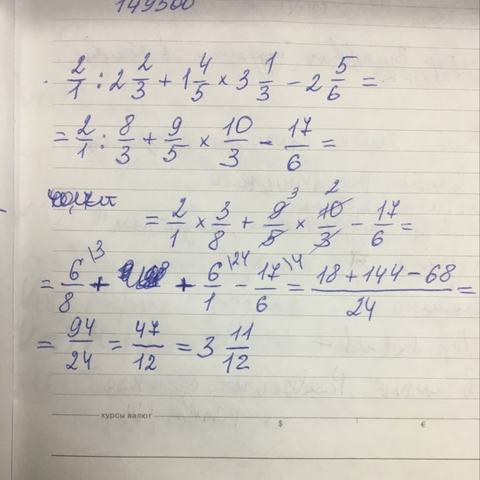 149500
2/1 : 2 2/3 + 1 4/5 × 3 1/3 - 2 5/6 =
= 2/1 : 8/3 + 9/5 × 10/3 - 17/6 =
= 2/1 × 3/8 + 9/5 3 × 10/3 2 - 17/6 =
= 6/8 \3 + + 6/1 \24 - 17/6 \4 = (18 + 144 - 68)/24 =
= 94/24 = 47/12 = 3 11/12
курсы валют $ €